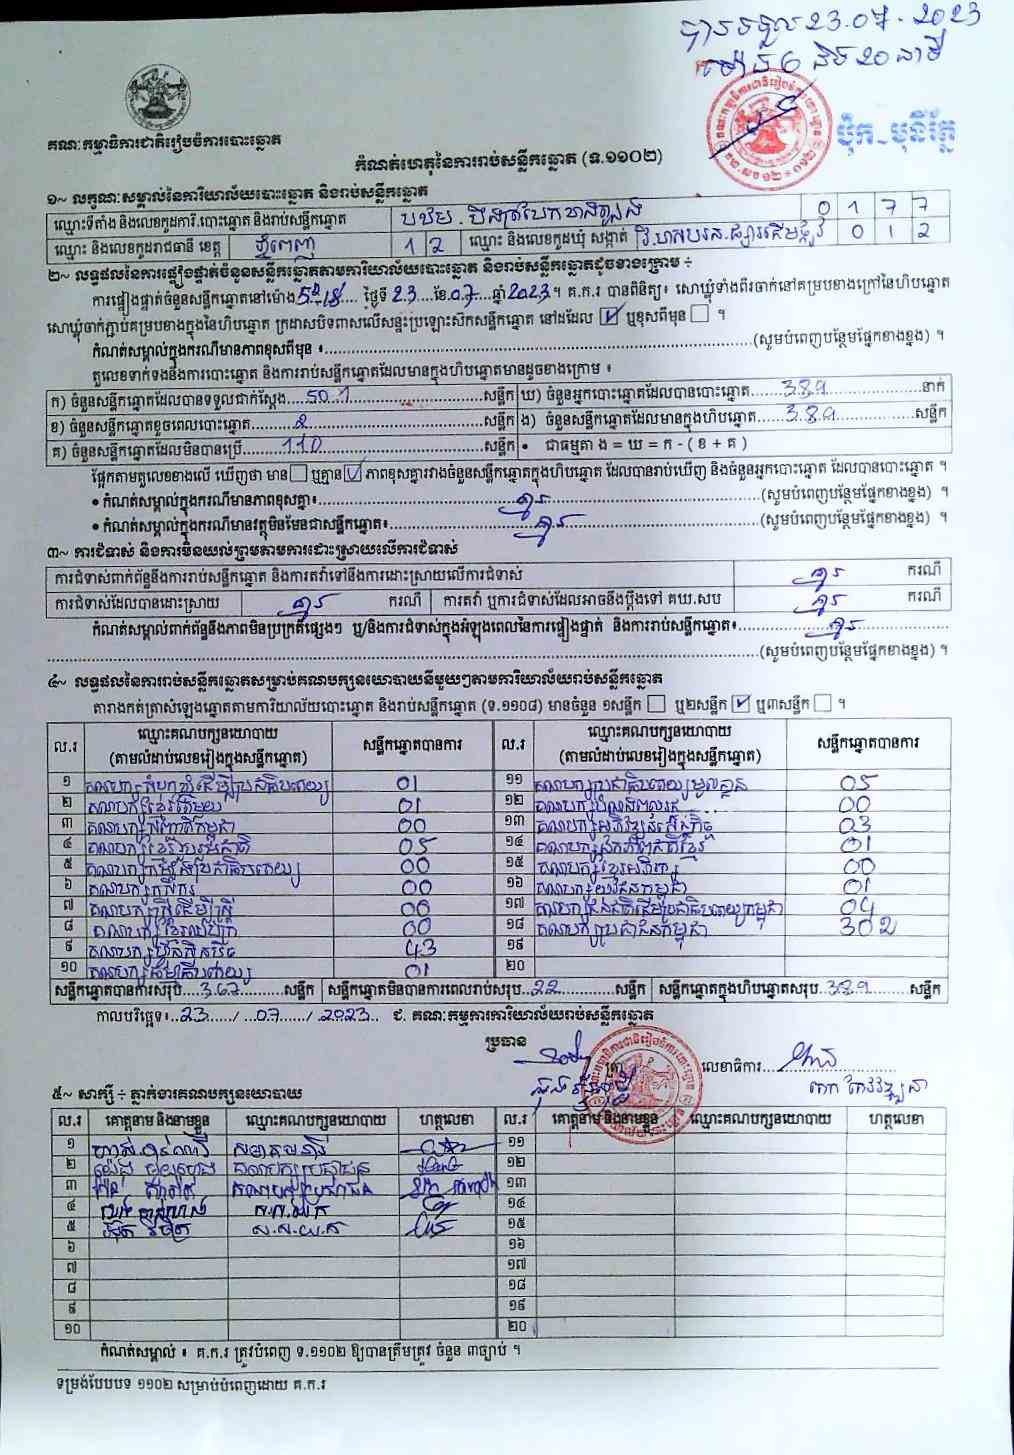 បានទទួល 23.07.2023
ម៉ោង 6 និង 20 នាទី
គណៈកម្មាធិការជាតិរៀបចំការបោះឆ្នោត
ប៉ុក_មុនីរ័ត្ន
កំណត់ហេតុនៃការរាប់សន្លឹកឆ្នោត (ទ.១១០២)
១~ លក្ខណៈសម្គាល់នៃការិយាល័យបោះឆ្នោត និងរាប់សន្លឹកឆ្នោត
ឈ្មោះទីតាំង និងលេខកូដការិ.បោះឆ្នោត និងរាប់សន្លឹកឆ្នោត 0 1 7 7
ឈ្មោះ និងលេខកូដរាជធានី ខេត្ត ភ្នំពេញ 1 2 ឈ្មោះ និងលេខកូដឃុំ សង្កាត់ ផ្សារដើមថ្កូវ 0 1 2
២~ លទ្ធផលនៃការផ្ទៀងផ្ទាត់ចំនួនសន្លឹកឆ្នោតតាមការិយាល័យបោះឆ្នោត និងរាប់សន្លឹកឆ្នោតដូចខាងក្រោម ÷
ការផ្ទៀងផ្ទាត់ចំនួនសន្លឹកឆ្នោតនៅម៉ោង ថ្ងៃទី 23 ខែ 07 ឆ្នាំ 2023 ។ គ.ក.រ បានពិនិត្យ៖ សោឃ្លុំទាំងពីរចាក់នៅគម្របខាងក្រៅនៃហិបឆ្នោត
សោឃ្លុំចាក់ភ្ជាប់គម្របខាងក្នុងនៃហិបឆ្នោត ក្រដាសបិទពាសលើសន្ទះប្រឡោះស៊កសន្លឹកឆ្នោត នៅដដែល ☑ ឬខុសពីមុន ☐ ។
កំណត់សម្គាល់ក្នុងករណីមានភាពខុសពីមុន ៖ (សូមបំពេញបន្ថែមផ្នែកខាងខ្នង) ។
តួលេខទាក់ទងនឹងការបោះឆ្នោត និងការរាប់សន្លឹកឆ្នោតដែលមានក្នុងហិបឆ្នោតមានដូចខាងក្រោម ៖
ក) ចំនួនសន្លឹកឆ្នោតដែលបានទទួលជាក់ស្តែង 501 សន្លឹក ឃ) ចំនួនអ្នកបោះឆ្នោតដែលបានបោះឆ្នោត 389 នាក់
ខ) ចំនួនសន្លឹកឆ្នោតខូចពេលបោះឆ្នោត 2 សន្លឹក ង) ចំនួនសន្លឹកឆ្នោតដែលមានក្នុងហិបឆ្នោត 389 សន្លឹក
គ) ចំនួនសន្លឹកឆ្នោតដែលមិនបានប្រើ 110 សន្លឹក • ជាធម្មតា ង = ឃ = ក - ( ខ + គ )
ផ្អែកតាមតួលេខខាងលើ ឃើញថា មាន ☐ ឬគ្មាន ☑ ភាពខុសគ្នារវាងចំនួនសន្លឹកឆ្នោតក្នុងហិបឆ្នោត ដែលបានរាប់ឃើញ និងចំនួនអ្នកបោះឆ្នោត ដែលបានបោះឆ្នោត ។
• កំណត់សម្គាល់ក្នុងករណីមានភាពខុសគ្នា៖ គ្មាន (សូមបំពេញបន្ថែមផ្នែកខាងខ្នង) ។
• កំណត់សម្គាល់ក្នុងករណីមានវត្ថុមិនមែនជាសន្លឹកឆ្នោត៖ គ្មាន (សូមបំពេញបន្ថែមផ្នែកខាងខ្នង) ។
៣~ ការជំទាស់ និងការមិនយល់ព្រមតាមការដោះស្រាយលើការជំទាស់
ការជំទាស់ពាក់ព័ន្ធនឹងការរាប់សន្លឹកឆ្នោត និងការតវ៉ាទៅនឹងការដោះស្រាយលើការជំទាស់ គ្មាន ករណី
ការជំទាស់ដែលបានដោះស្រាយ គ្មាន ករណី ការតវ៉ា ឬការជំទាស់ដែលអាចនឹងប្តឹងទៅ គឃ.សប គ្មាន ករណី
កំណត់សម្គាល់ពាក់ព័ន្ធនឹងភាពមិនប្រក្រតីផ្សេងៗ ឬ/និងការជំទាស់ក្នុងអំឡុងពេលនៃការផ្ទៀងផ្ទាត់ និងការរាប់សន្លឹកឆ្នោត៖ គ្មាន
(សូមបំពេញបន្ថែមផ្នែកខាងខ្នង) ។
៤~ លទ្ធផលនៃការរាប់សន្លឹកឆ្នោតសម្រាប់គណបក្សនយោបាយនីមួយៗតាមការិយាល័យរាប់សន្លឹកឆ្នោត
តារាងកត់ត្រាសំឡេងឆ្នោតតាមការិយាល័យបោះឆ្នោត និងរាប់សន្លឹកឆ្នោត (ទ.១១០៨) មានចំនួន ១សន្លឹក ☐ ឬ២សន្លឹក ☑ ឬ៣សន្លឹក ☐ ។
ល.រ ឈ្មោះគណបក្សនយោបាយ (តាមលំដាប់លេខរៀងក្នុងសន្លឹកឆ្នោត) សន្លឹកឆ្នោតបានការ ល.រ ឈ្មោះគណបក្សនយោបាយ (តាមលំដាប់លេខរៀងក្នុងសន្លឹកឆ្នោត) សន្លឹកឆ្នោតបានការ
១ គណបក្សសំបុកឃ្មុំដើម្បីប្រជាធិបតេយ្យ 01 ១១ គណបក្សប្រជាធិបតេយ្យមូលដ្ឋាន 05
២ គណបក្សខ្មែរតែមួយ 01 ១២ គណបក្សបំណងពលរដ្ឋ 00
៣ គណបក្សសញ្ជាតិកម្ពុជា 00 ១៣ គណបក្សអភិវឌ្ឍន៍សេដ្ឋកិច្ច 03
៤ គណបក្សខ្មែររួបរួមជាតិ 05 ១៤ គណបក្សឯកភាពជាតិខ្មែរ 01
៥ គណបក្សកម្លាំងប្រជាធិបតេយ្យ 00 ១៥ គណបក្សខ្មែរអភិរក្ស 00
៦ គណបក្សកសិករ 00 ១៦ គណបក្សយុវជនកម្ពុជា 01
៧ គណបក្សស្ត្រីដើម្បីស្ត្រី 00 ១៧ គណបក្សជនជាតិដើមប្រជាធិបតេយ្យកម្ពុជា 04
៨ 00 ១៨ គណបក្សប្រជាជនកម្ពុជា 302
៩ គណបក្សហ្វ៊ុនស៊ិនប៉ិច 43 ១៩
១០ គណបក្សធម្មាធិបតេយ្យ 01 ២០
សន្លឹកឆ្នោតបានការសរុប 367 សន្លឹក សន្លឹកឆ្នោតមិនបានការពេលរាប់សរុប 22 សន្លឹក សន្លឹកឆ្នោតក្នុងហិបឆ្នោតសរុប 389 សន្លឹក
កាលបរិច្ឆេទ៖ 23 / 07 / 2023 ជ. គណៈកម្មការការិយាល័យរាប់សន្លឹកឆ្នោត
ប្រធាន
លេខាធិការ
៥~ សាក្សី ÷ ភ្នាក់ងារគណបក្សនយោបាយ
ល.រ គោត្តនាម និងនាមខ្លួន ឈ្មោះគណបក្សនយោបាយ ហត្ថលេខា ល.រ គោត្តនាម និងនាមខ្លួន ឈ្មោះគណបក្សនយោបាយ ហត្ថលេខា
១ ១១
២ គណបក្សប្រជាជន ១២
៣ គណបក្សប្រជាជន ១៣
៤ ស.ស.យ.ក ១៤
៥ ស.ស.យ.ក ១៥
៦ ១៦
៧ ១៧
៨ ១៨
៩ ១៩
១០ ២០
កំណត់សម្គាល់ ៖ គ.ក.រ ត្រូវបំពេញ ទ.១១០២ ឱ្យបានត្រឹមត្រូវ ចំនួន ៣ច្បាប់ ។
ទម្រង់បែបបទ ១១០២ សម្រាប់បំពេញដោយ គ.ក.រ